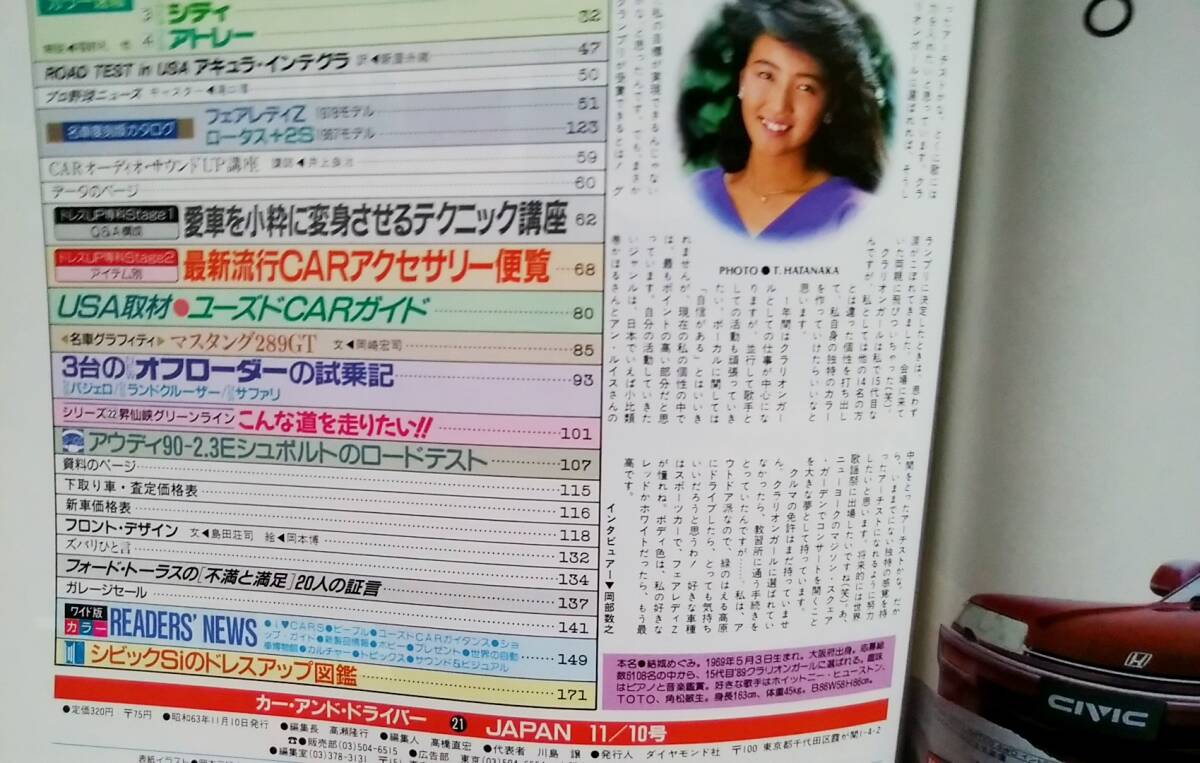 3 シティ 32
4 アトレー
ROAD TEST in USA アキュラ・インテグラ 47
プロ野球ニュース 50
名車復刻版カタログ
フェアレディZ 1978モデル 51
ロータス+2S 1967モデル 123
CARオーディオ・サウンドUP講座 59
データのページ 60
ドレスUP専科Stage1 Q&A構成 愛車を小粋に変身させるテクニック講座 62
ドレスUP専科Stage2 アイテム別 最新流行CARアクセサリー便覧 68
USA取材●ユーズドCARガイド 80
名車グラフィティ マスタング289GT 文◀岡崎宏司 85
3台の オフローダーの試乗記 93
パジェロ/ランドクルーザー/サファリ
シリーズ22 昇仙峡グリーンライン こんな道を走りたい!! 101
アウディ90-2.3Eシュポルトのロードテスト 107
資料のページ 115
下取り車・査定価格表 116
新車価格表 118
フロント・デザイン 文◀島田荘司 絵◀岡本博 132
ズバリひと言 134
フォード・トーラスの「不満と満足」20人の証言 137
ガレージセール 141
ワイド版 カラー READERS' NEWS 149
●I♥CARS●ピープル●ユーズドCARガイダンス●ショ
ップ・ガイド●新製品情報●ホビー●プレゼント●世界の自動
車博物館●カルチャー●トピックス●サウンド&ビジュアル
シビックSiのドレスアップ図鑑 171
私の自慢が実現できるんじゃない
かな、と思ったんです。でもまさか
グランプリが受賞できるとは! グ
PHOTO ● T. HATANAKA
ランプリに決定したときは、思わず
涙がこぼれてきました。会場に来て
いた両親に飛びついちゃった(笑)。
クラリオンガールは私で15代目な
んですが、私としては他の14名の方
とは違った個性を打ち出し
て、私自身の独特のカラー
を作っていけたらいいなと
思います。
1年間はクラリオンガー
ルとしての仕事が中心にな
りますが、並行して歌手と
しての活動も頑張っていき
たい。ボーカルに関しては
「自信がある」とはいいき
れませんが、現在の私の個性の中で
は、最もポイントの高い部分だと思
っています。自分の活動していきた
いジャンルは、日本でいえば小比類
巻かほるさんとアン・ルイスさんの
中間をとったアーチストかな。だか
ら、いままでにない独特の感覚を持
ったアーチストになれるように努力
したいと思います。将来的には世界
歌謡祭に出場したいですね(笑)。あ、
ニューヨークのマジソン・スクェア
・ガーデンでコンサートを開くこと
を大きな夢として持っています。
クルマの免許はまだ持っていませ
ん。クラリオンガールに選ばれてい
なかったら、教習所に通う手続きを
とっていたんですが……。私は、ア
ウトドア派なので、緑のはえる高原
にドライブしたら、とっても気持ち
いいだろうと思うわ♪ 好きな車種
はスポーツカーで、フェアレディZ
が憧れね。ボディ色は、私の好きな
レッドかホワイトだったら、もう最
高です。
インタビュアー▼岡部数之
本名●結城めぐみ。1969年5月3日生まれ。大阪府出身。応募総
数6108名の中から、15代目'89クラリオンガールに選ばれる。趣味
はピアノと音楽鑑賞。好きな歌手はホイットニー・ヒューストン、
TOTO、角松敏生。身長163cm、体重45kg。B86W58H86cm。
カー・アンド・ドライバー 21 JAPAN 11/10号
●定価320円 〒75円 ●昭和63年11月10日発行 ●編集長 高瀬隆行 ●編集人 高橋直宏 ●代表者 川島 譲 ●発行人 ダイヤモンド社 〒100 東京都千代田区霞が関1-4-2
☎●販売部(03)504-6515 ●広告部 東京(03)504-
●編集室(03)378-3131
表紙イラスト●
CIVIC